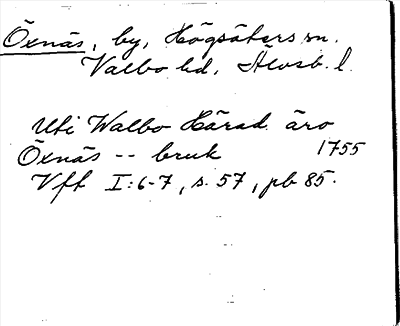 Öxnäs, by, Högsäters sn.
Valbo hd, Älvsb. l.
Uti Walbo Härad äro
Öxnäs -- bruk 1755
Vft I:6-7, s. 57, pb 85.